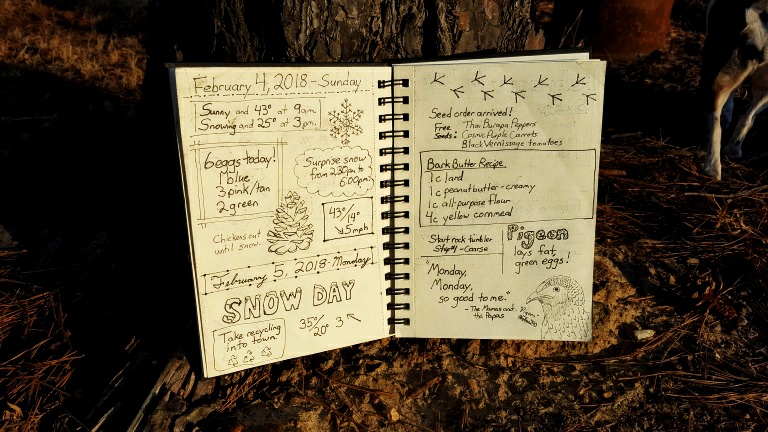 February 4, 2018 - Sunday
Sunny and 43° at 9am.
Snowing and 25° at 3pm.
6 eggs today!
1 blue
3 pink/tan
2 green
Surprise snow
from 2:30pm to
6:00pm.
43°/14°
↘5mph
Chickens out
until snow.
February 5, 2018 - Monday
SNOW DAY
Take recycling
into town.
35°/20° 3↖
Seed order arrived!
Free Seeds: Thai Burapa Peppers
Cosmic Purple Carrots
Black Vernissage tomatoes
Bark Butter Recipe
1 c lard
1 c peanut butter - creamy
1 c all purpose flour
4 c yellow cornmeal
Start rock tumbler
Step #1 - Coarse
Pigeon
lays fat,
green eggs!
"Monday,
Monday,
so good to me."
- The Mamas and
the Papas